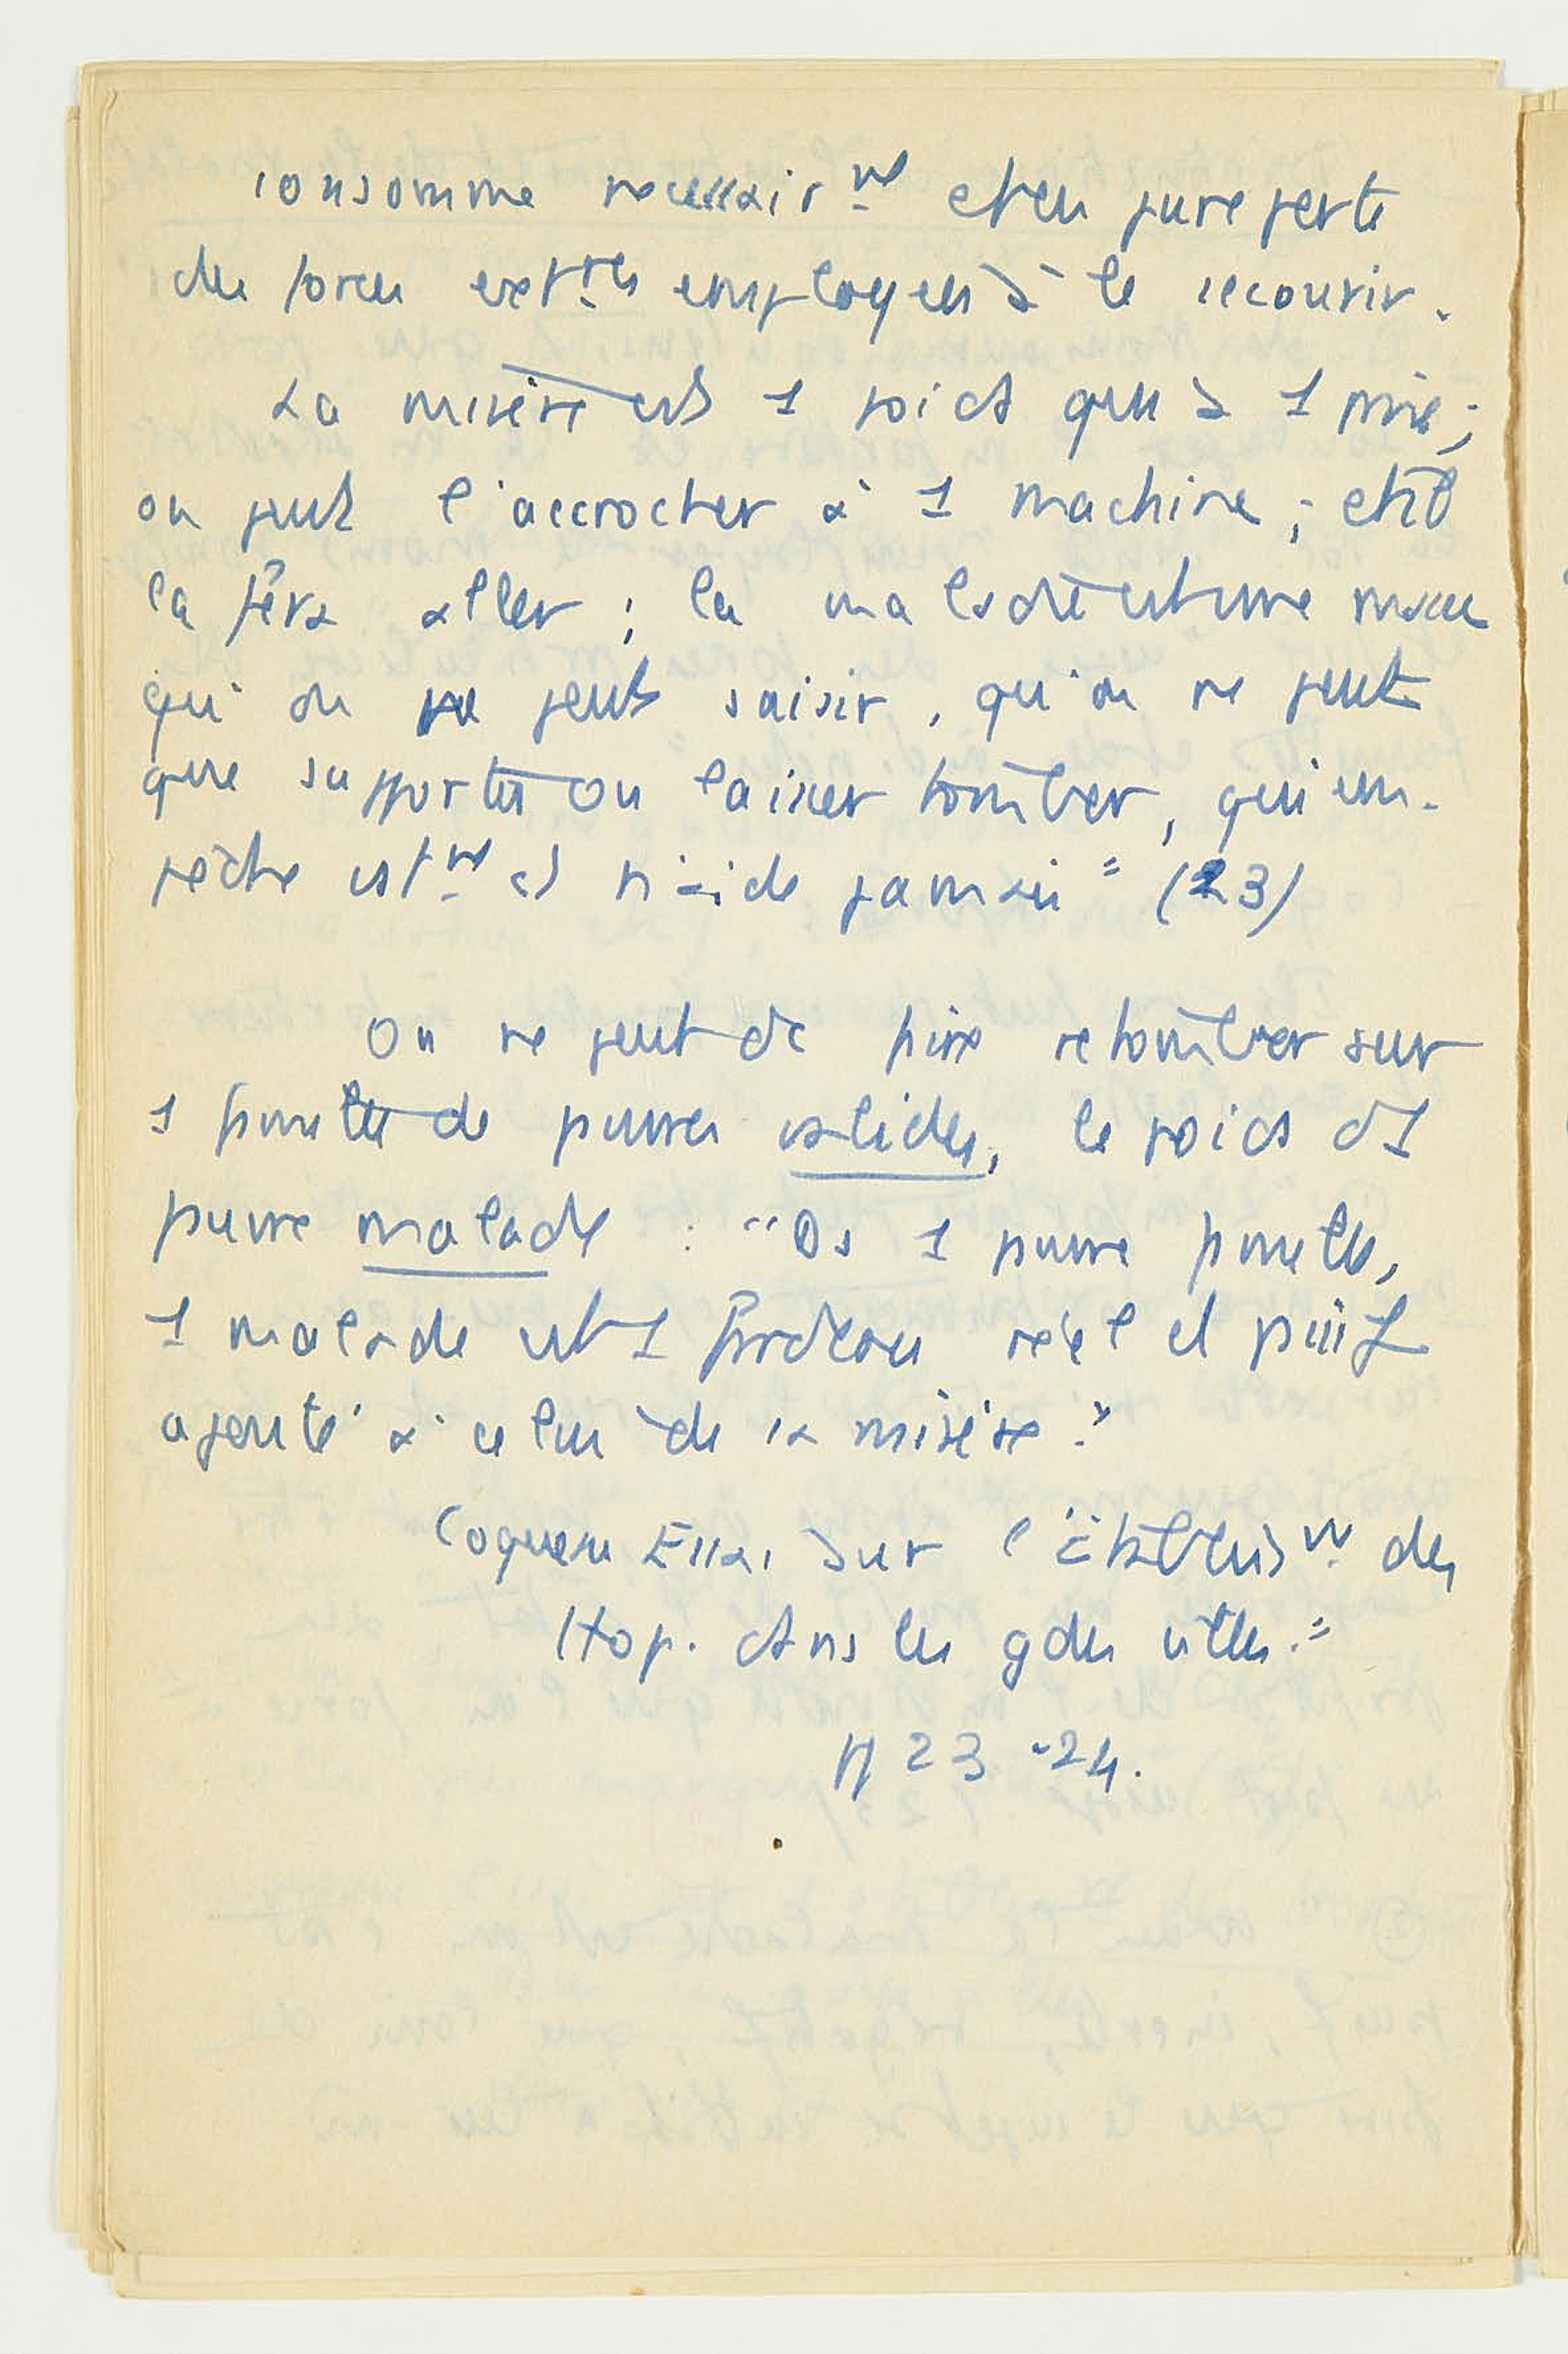 consomme nécessair mt et en pure perte
des forces ext res employées à le secourir.
La misère est 1 poids qui a 1 prise ;
on peut l'accrocher à 1 machine ; et il
la fera aller ; la maladie est une masse
qu'on ne peut saisir, qu'on ne peut
que supporter ou laisser tomber, qui em-
pêche et n'aide jamais" (23)
On ne peut dc faire retomber sur
1 famille de pauvres valides, le poids d'1
pauvre malade : "Ds 1 pauvre famille,
1 malade est 1 fardeau réel et positif
ajouté à celui de la misère."
Coqueau Essai sur l'Etabliss mt des
Hop. dans les gdes villes."
pp 23-24.